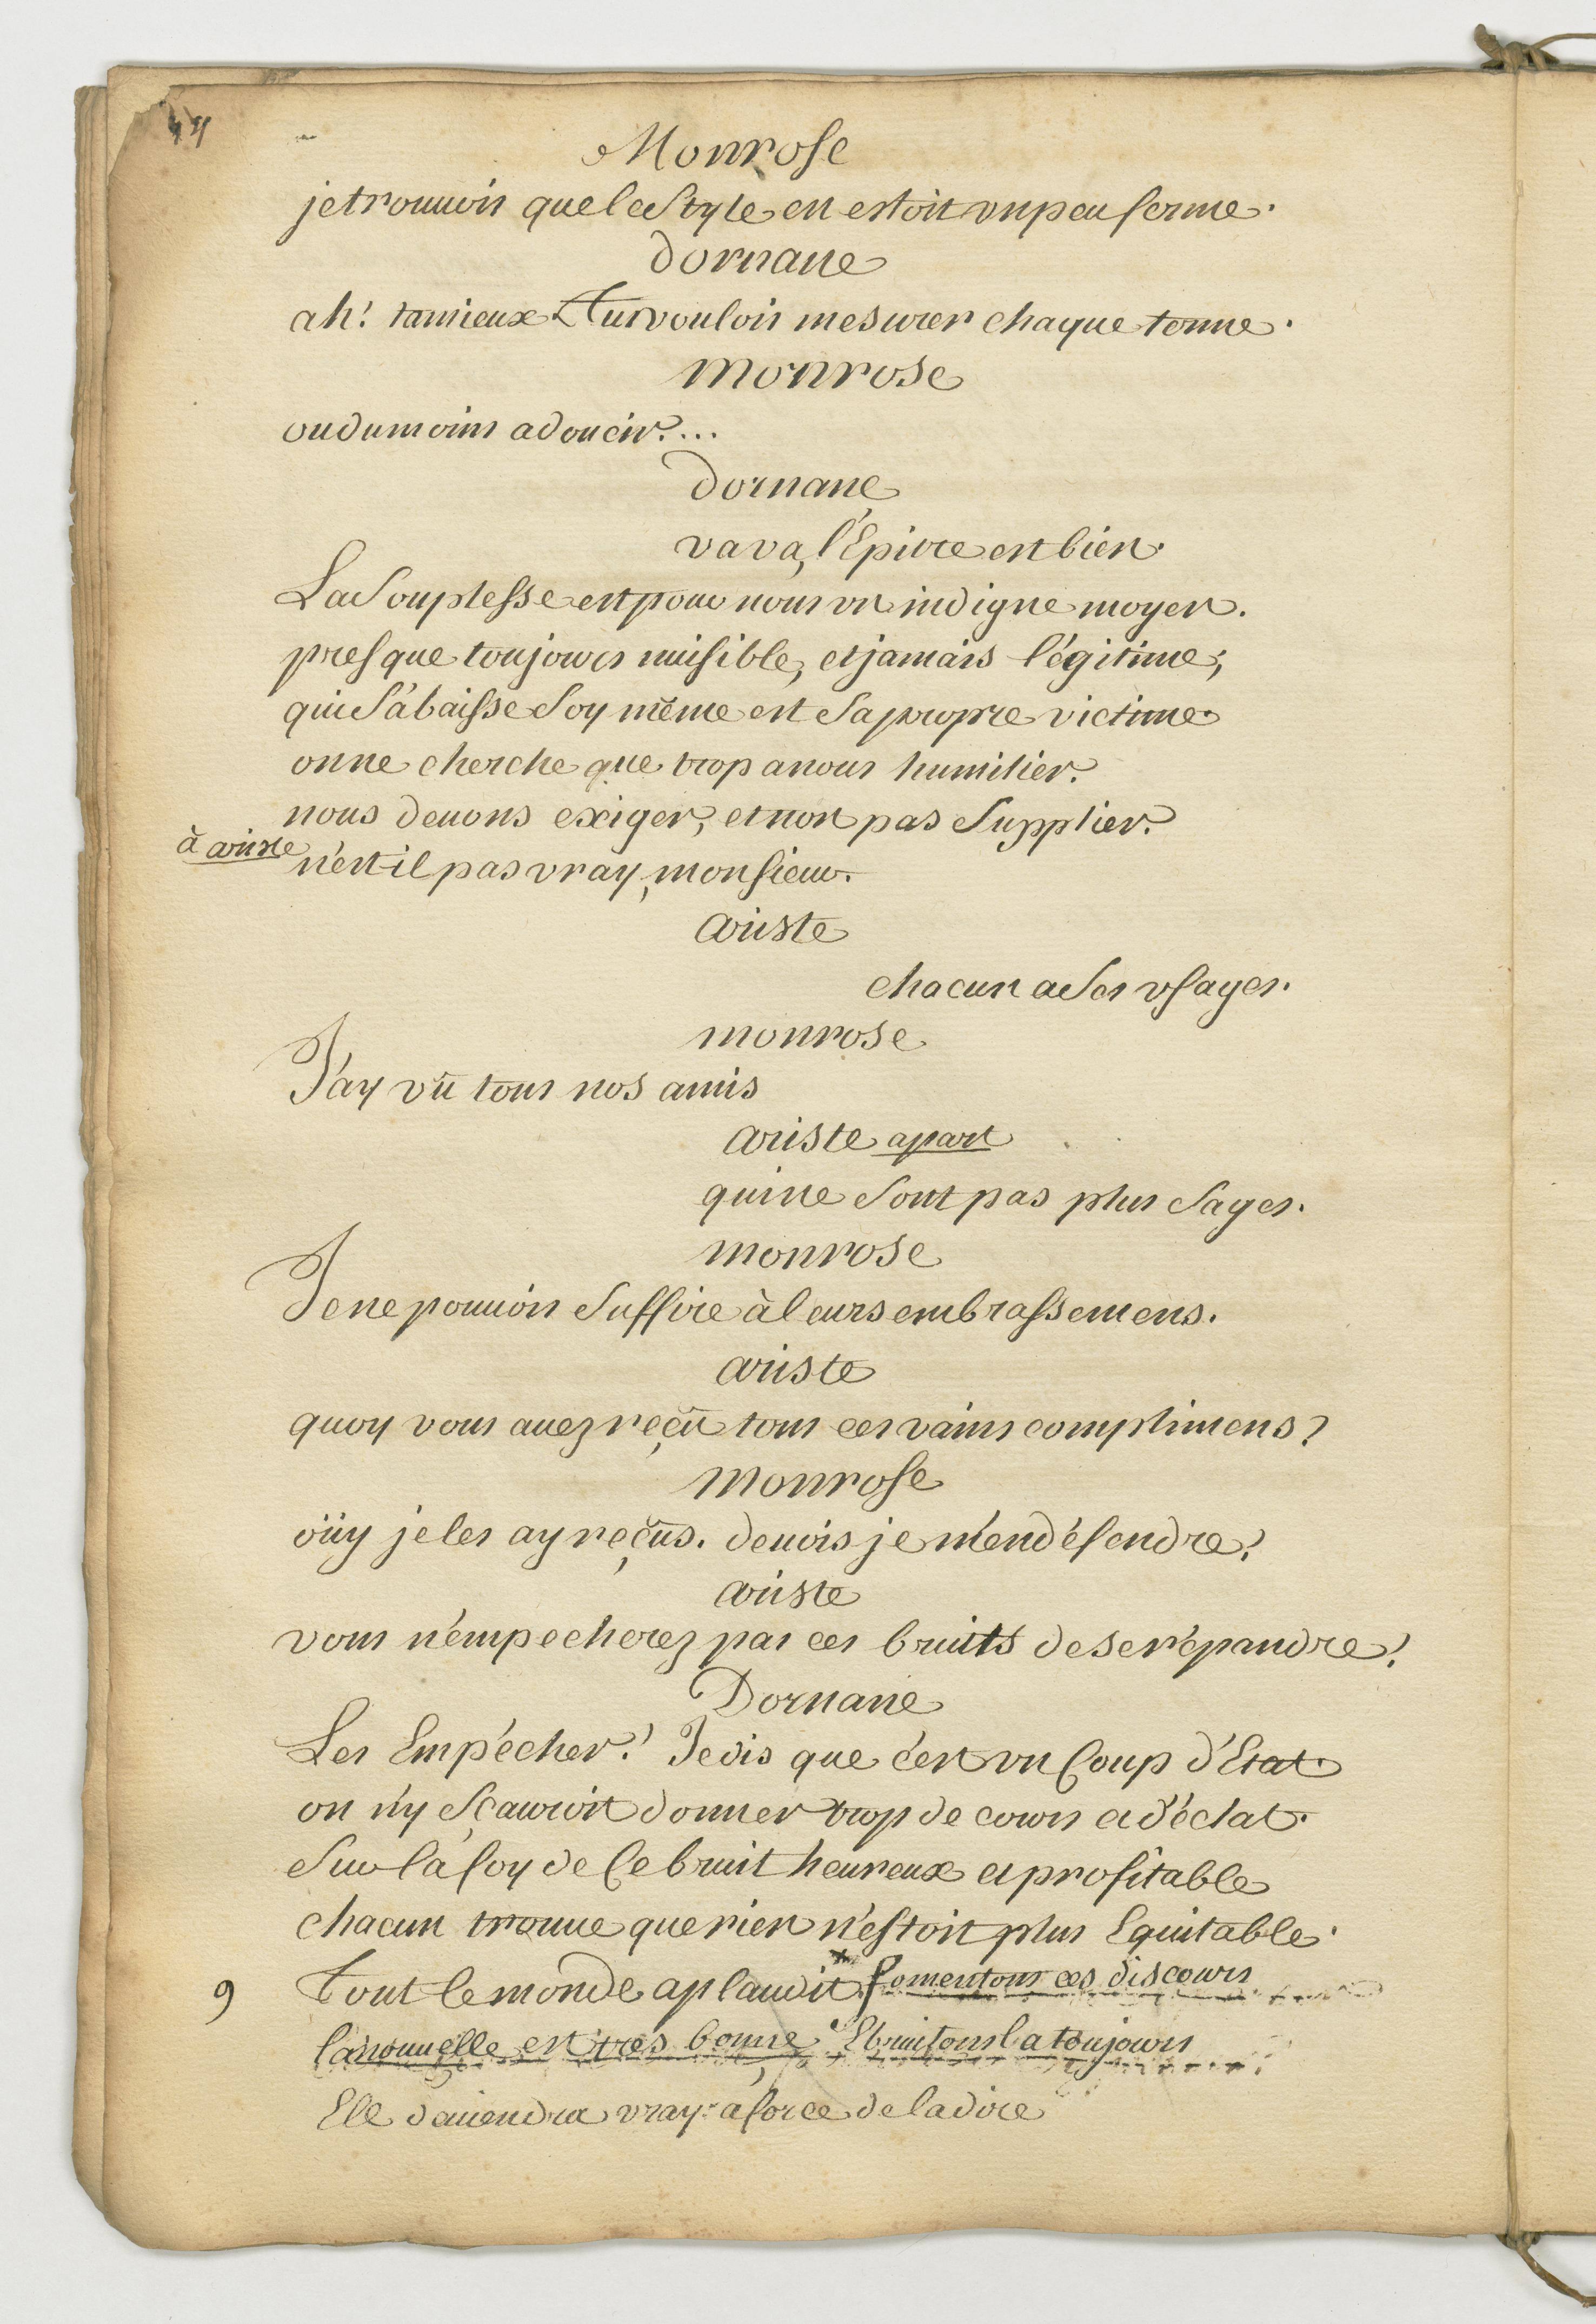 Monrose
je trouuois que le Style en estoit un peu ferme.
dornane
ah! tamieux Tu voulois mesurer chaque terme.
monrose
ou du moins adoucir....
dornane
va va, l'Epitre est bien.
La Souplesse est pour nous un indigne moyen.
presque toujours nuisible, et jamais légitime;
qui S'abaisse Soy même est Sa propre victime.
on ne cherche que trop a nous humilier.
nous deuons exiger, et non pas Supplier.
à ariste
n'est-il pas vray, monsieur.
ariste
chacun a Ses usages.
monrose
J'ay vû tous nos amis
ariste apart
qui ne Sont pas plus Sages.
monrose
Je ne pouuois Suffire à leurs embrassemens.
ariste
quoy vous auez reçû tous ces vains complimens?
monrose
oüy je les ay reçûs. deuois je m'en défendre?
ariste
vous n'empecherez pas ces bruits de se répandre!
Dornane
Les Empécher! Je dis que c'est un Coup d'Etat.
on n'y Sçauroit donner trop de cours et d'éclat.
Sur la foy de Ce bruit heureux et profitable
chacun trouue que rien n'estoit plus Equitable.
9 Tout le monde aplaudit. fomentons ces discours
la nouuelle est tres bonne, Ebruitons la toujours
Elle deuiendra vray: a force de la dire